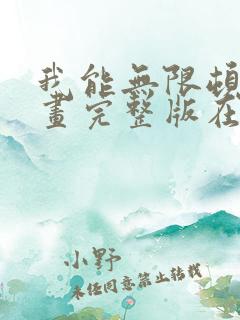 我能無限頓
畫完整版在
小野
未经同意禁止转载